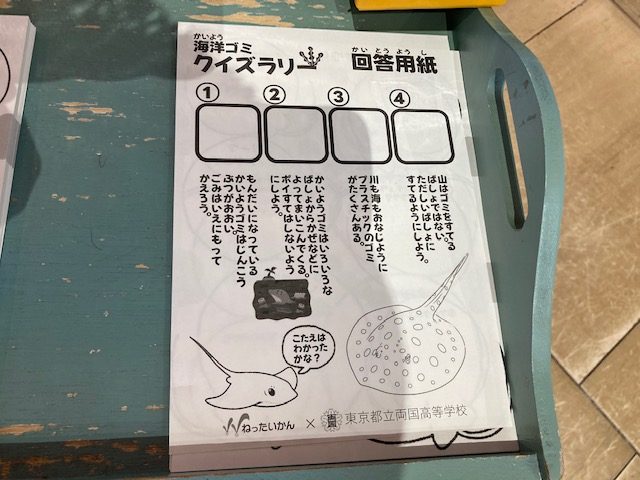 かいよう
海洋ゴミ
クイズラリー
かいとうようし
回答用紙
① ② ③ ④
山はゴミをすてる
ばしょではない。
ただしいばしょに
すてるようにしよう。
川も海もおなじように
プラスチックのゴミ
がたくさんある。
かいようゴミはいろいろな
ばしょからかぜなどに
よってまいこんでくる。
ポイすてはしないよう
にしよう。
もんだいになっている
かいようゴミはじんこう
ぶつがおおい。
ごみはいえにもって
かえろう。
こたえは
わかった
かな？
ねったいかん × 東京都立両国高等学校